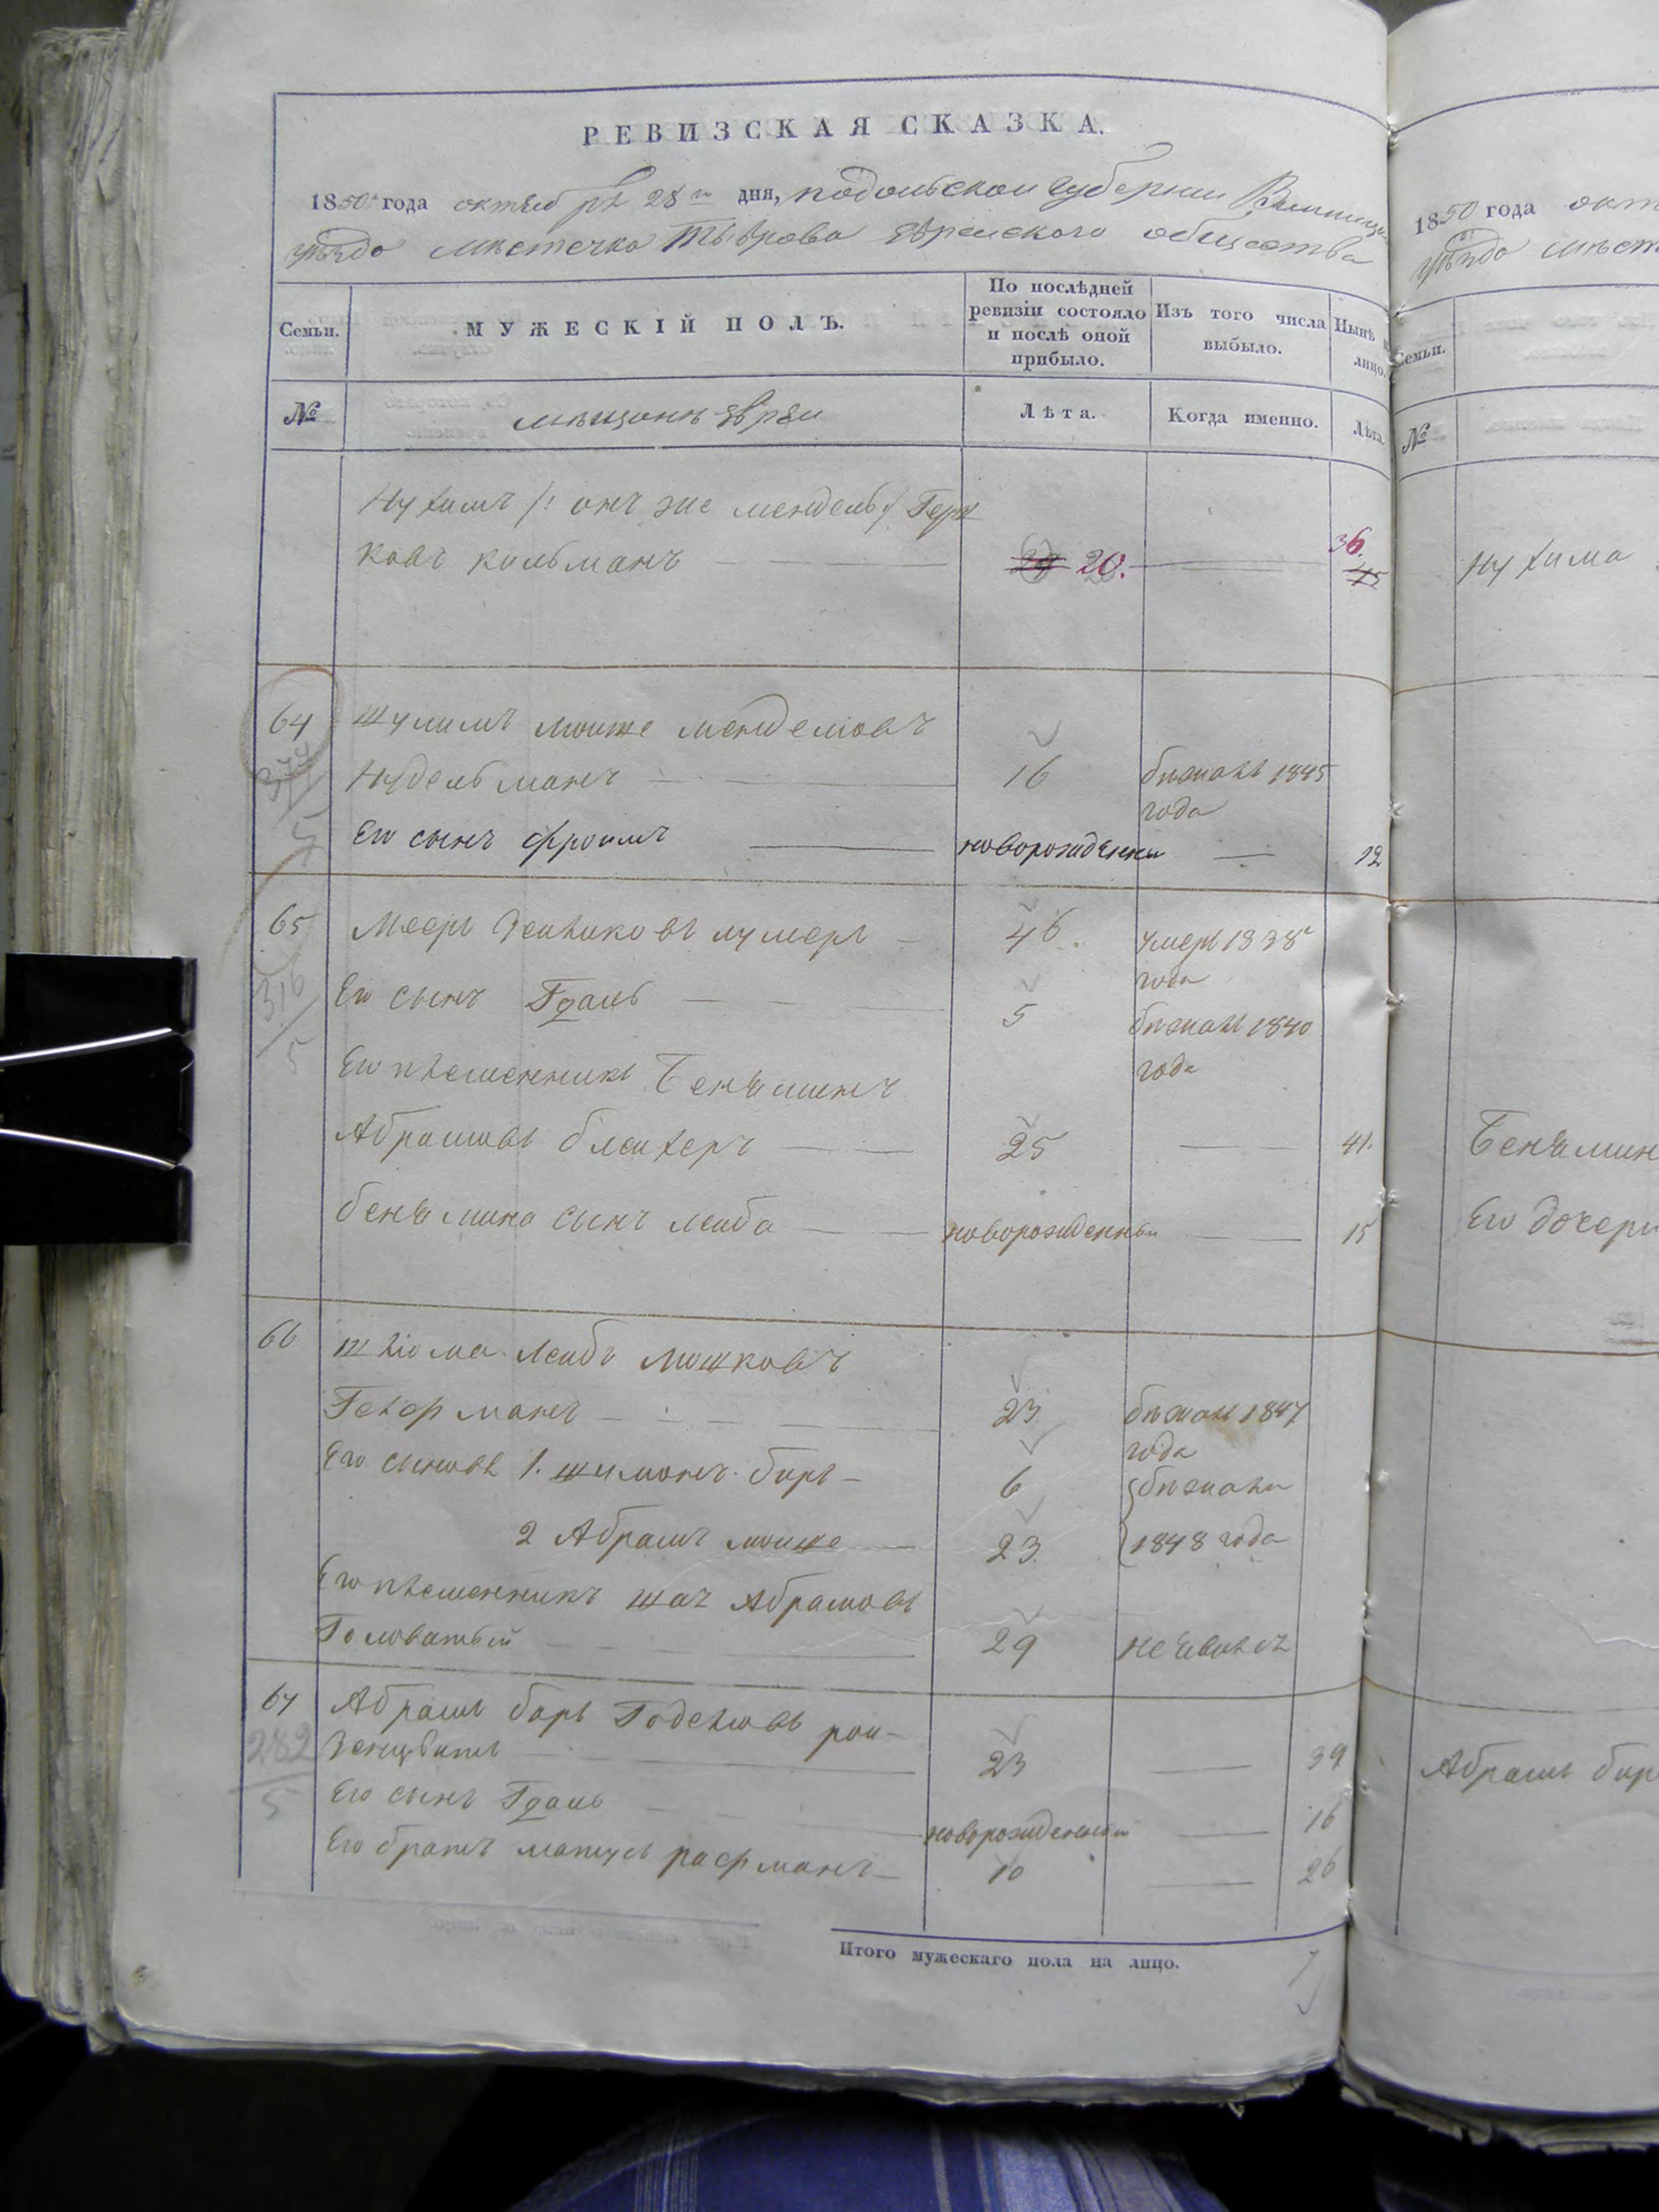 РЕВИЗСКАЯ СКАЗКА.
1850 года октября 28го дня, подольской губернии Винницк
уѣзда мѣстечка Тыврова Еврейскаго общества
Семьи.
МУЖЕСКІЙ ПОЛЪ.
По послѣдней ревизіи состояло и послѣ оной прибыло.
Изъ того числа выбыло.
Нынѣ на лицо.
№
мѣщанъ Евреи
Лѣта.
Когда именно.
Лѣта.
Нухимъ /: онъ же мендель :/ Герш
ковъ кильманъ 20. 36.
64 Шулимъ Мошке менделювъ
Нудельманъ 16 бѣжалъ 1845 года
Его сынъ Фроимъ новорожденны 12
65 Мееръ Зейликовъ 46. умеръ 1838 года
Его сынъ Гдаль 5 бѣжалъ 1840 года
Его племенникъ Беньяминъ
Абрамовъ блейхеръ 25 41.
беньямина сынъ лейба новорожденны 15
66 Шлюма Лейбъ Мошковъ
Гельфманъ 23 бѣжалъ 1847 года
Его сыновья 1. шимонъ беръ 6 бѣжали
2 Абрамъ мошке 23. 1848 года
Его племенникъ шая Абрамовъ
Головатый 29 неявился
67 Абрамъ беръ Годельовъ рои-
зенцвитъ 23 39
Его сынъ Гдаль новорожденны 16
Его братъ матусъ рафманъ 10 26
Итого мужескаго пола на лицо. 7
1850 года окт
уѣзда мѣст
Семьи.
№
Нухима
Беньямин
Его дочери
Абрамъ бер